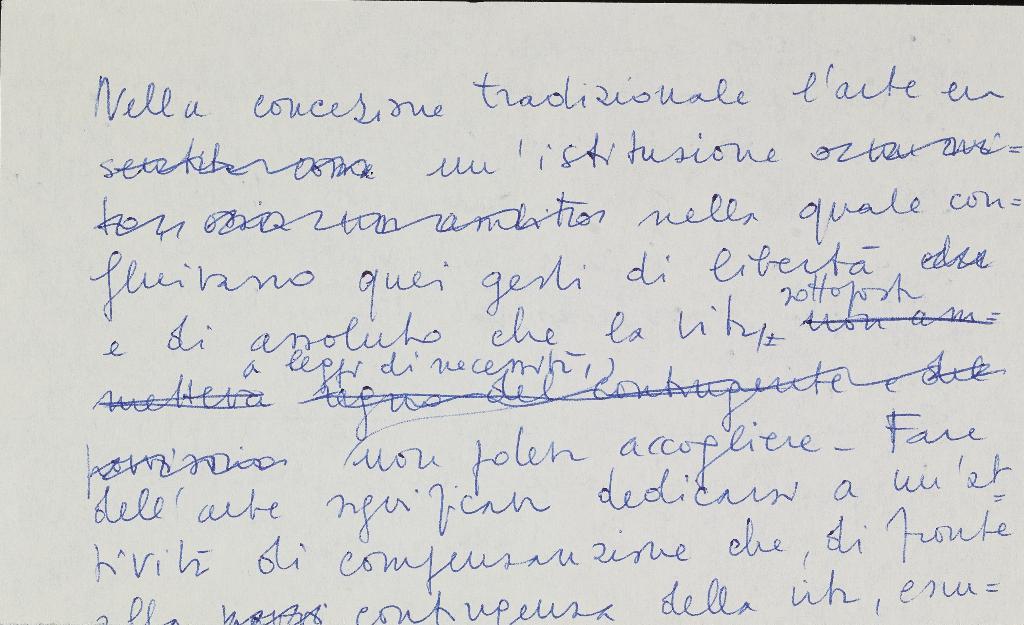 Nella concezione tradizionale l'arte era
un'istituzione
nella quale con=
fluivano quei gesti di libertà
sottoposta
e di assoluto che la vita, non am=
a leggi di necessità,
metteva regno del contingente e del
non poteva accogliere - Fare
dell'arte significava dedicarsi a un'at=
tività di compensazione che, di fronte
alla contingenza della vita, esau=